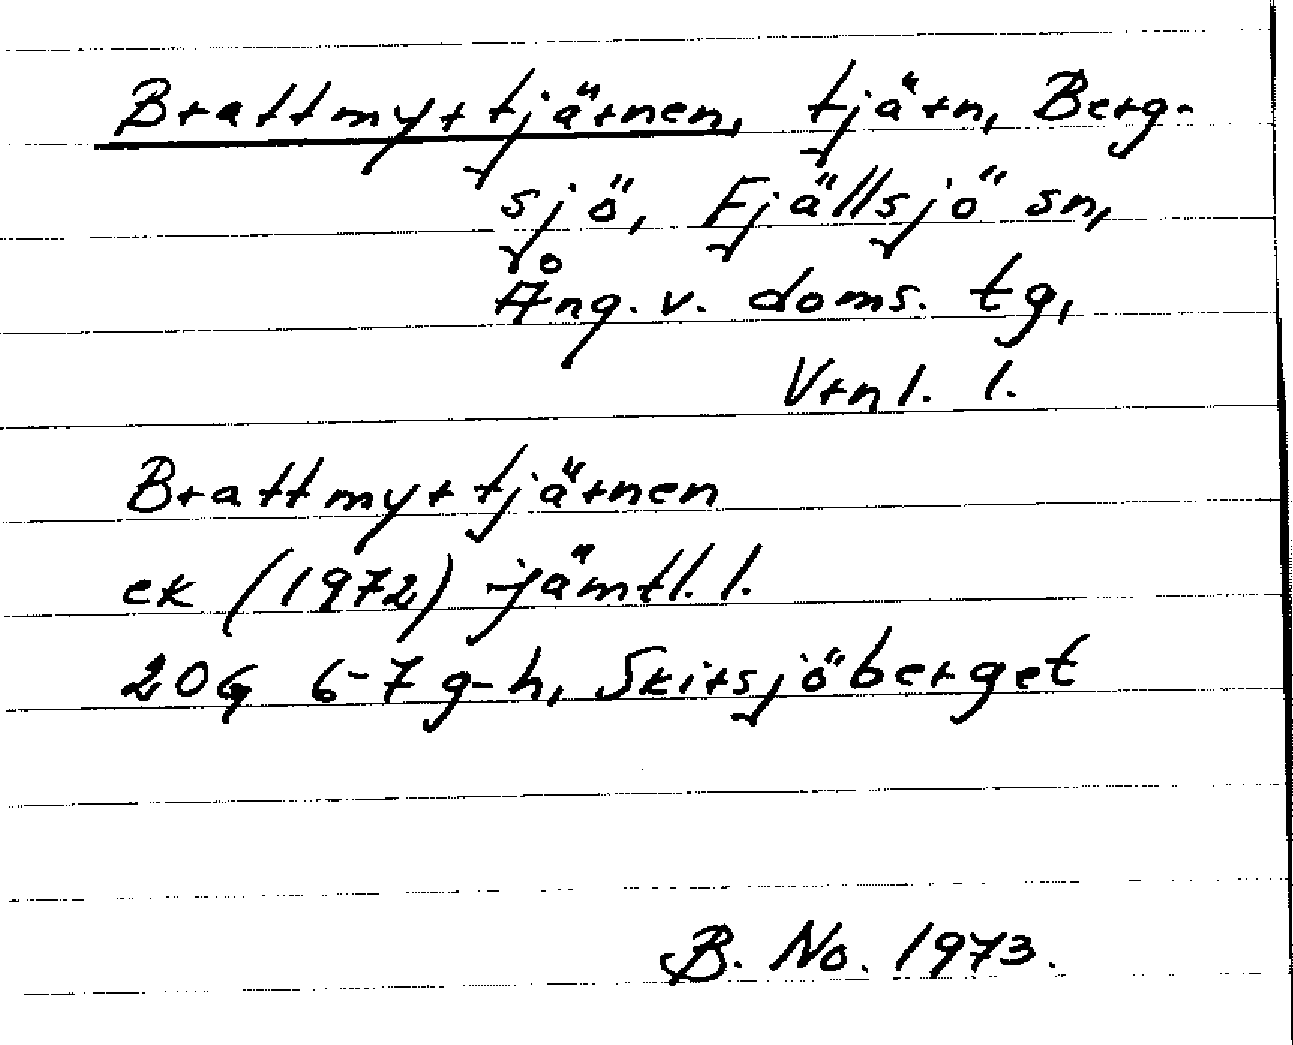 Brattmyrtjärnen, tjärn, Berg-
sjö, Fjällsjö sn,
Ång. v. doms. tg,
Vrnl. l.
Brattmyrtjärnen
ek (1972) jämtl. l.
20G 6-7 g-h, Skirsjöberget
B. No. 1973.